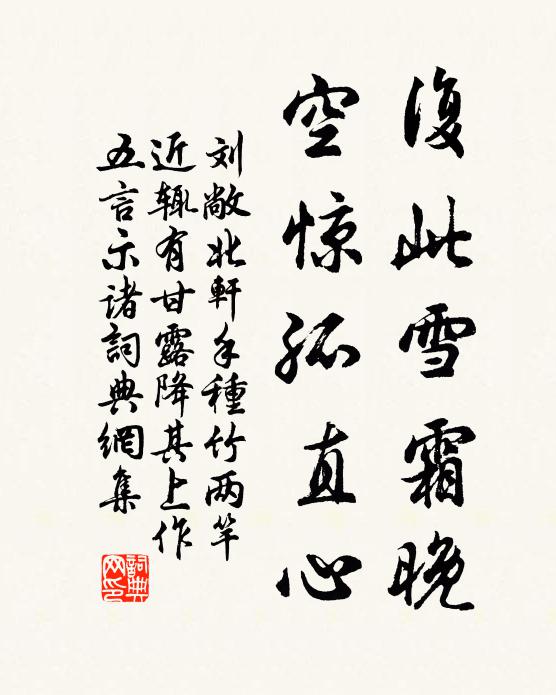 復此雪霜晚
空惊孤直心
刘敞北軒手種竹两竿
近輒有甘露降其上作
五言示诸詞典網集
詞典
网印